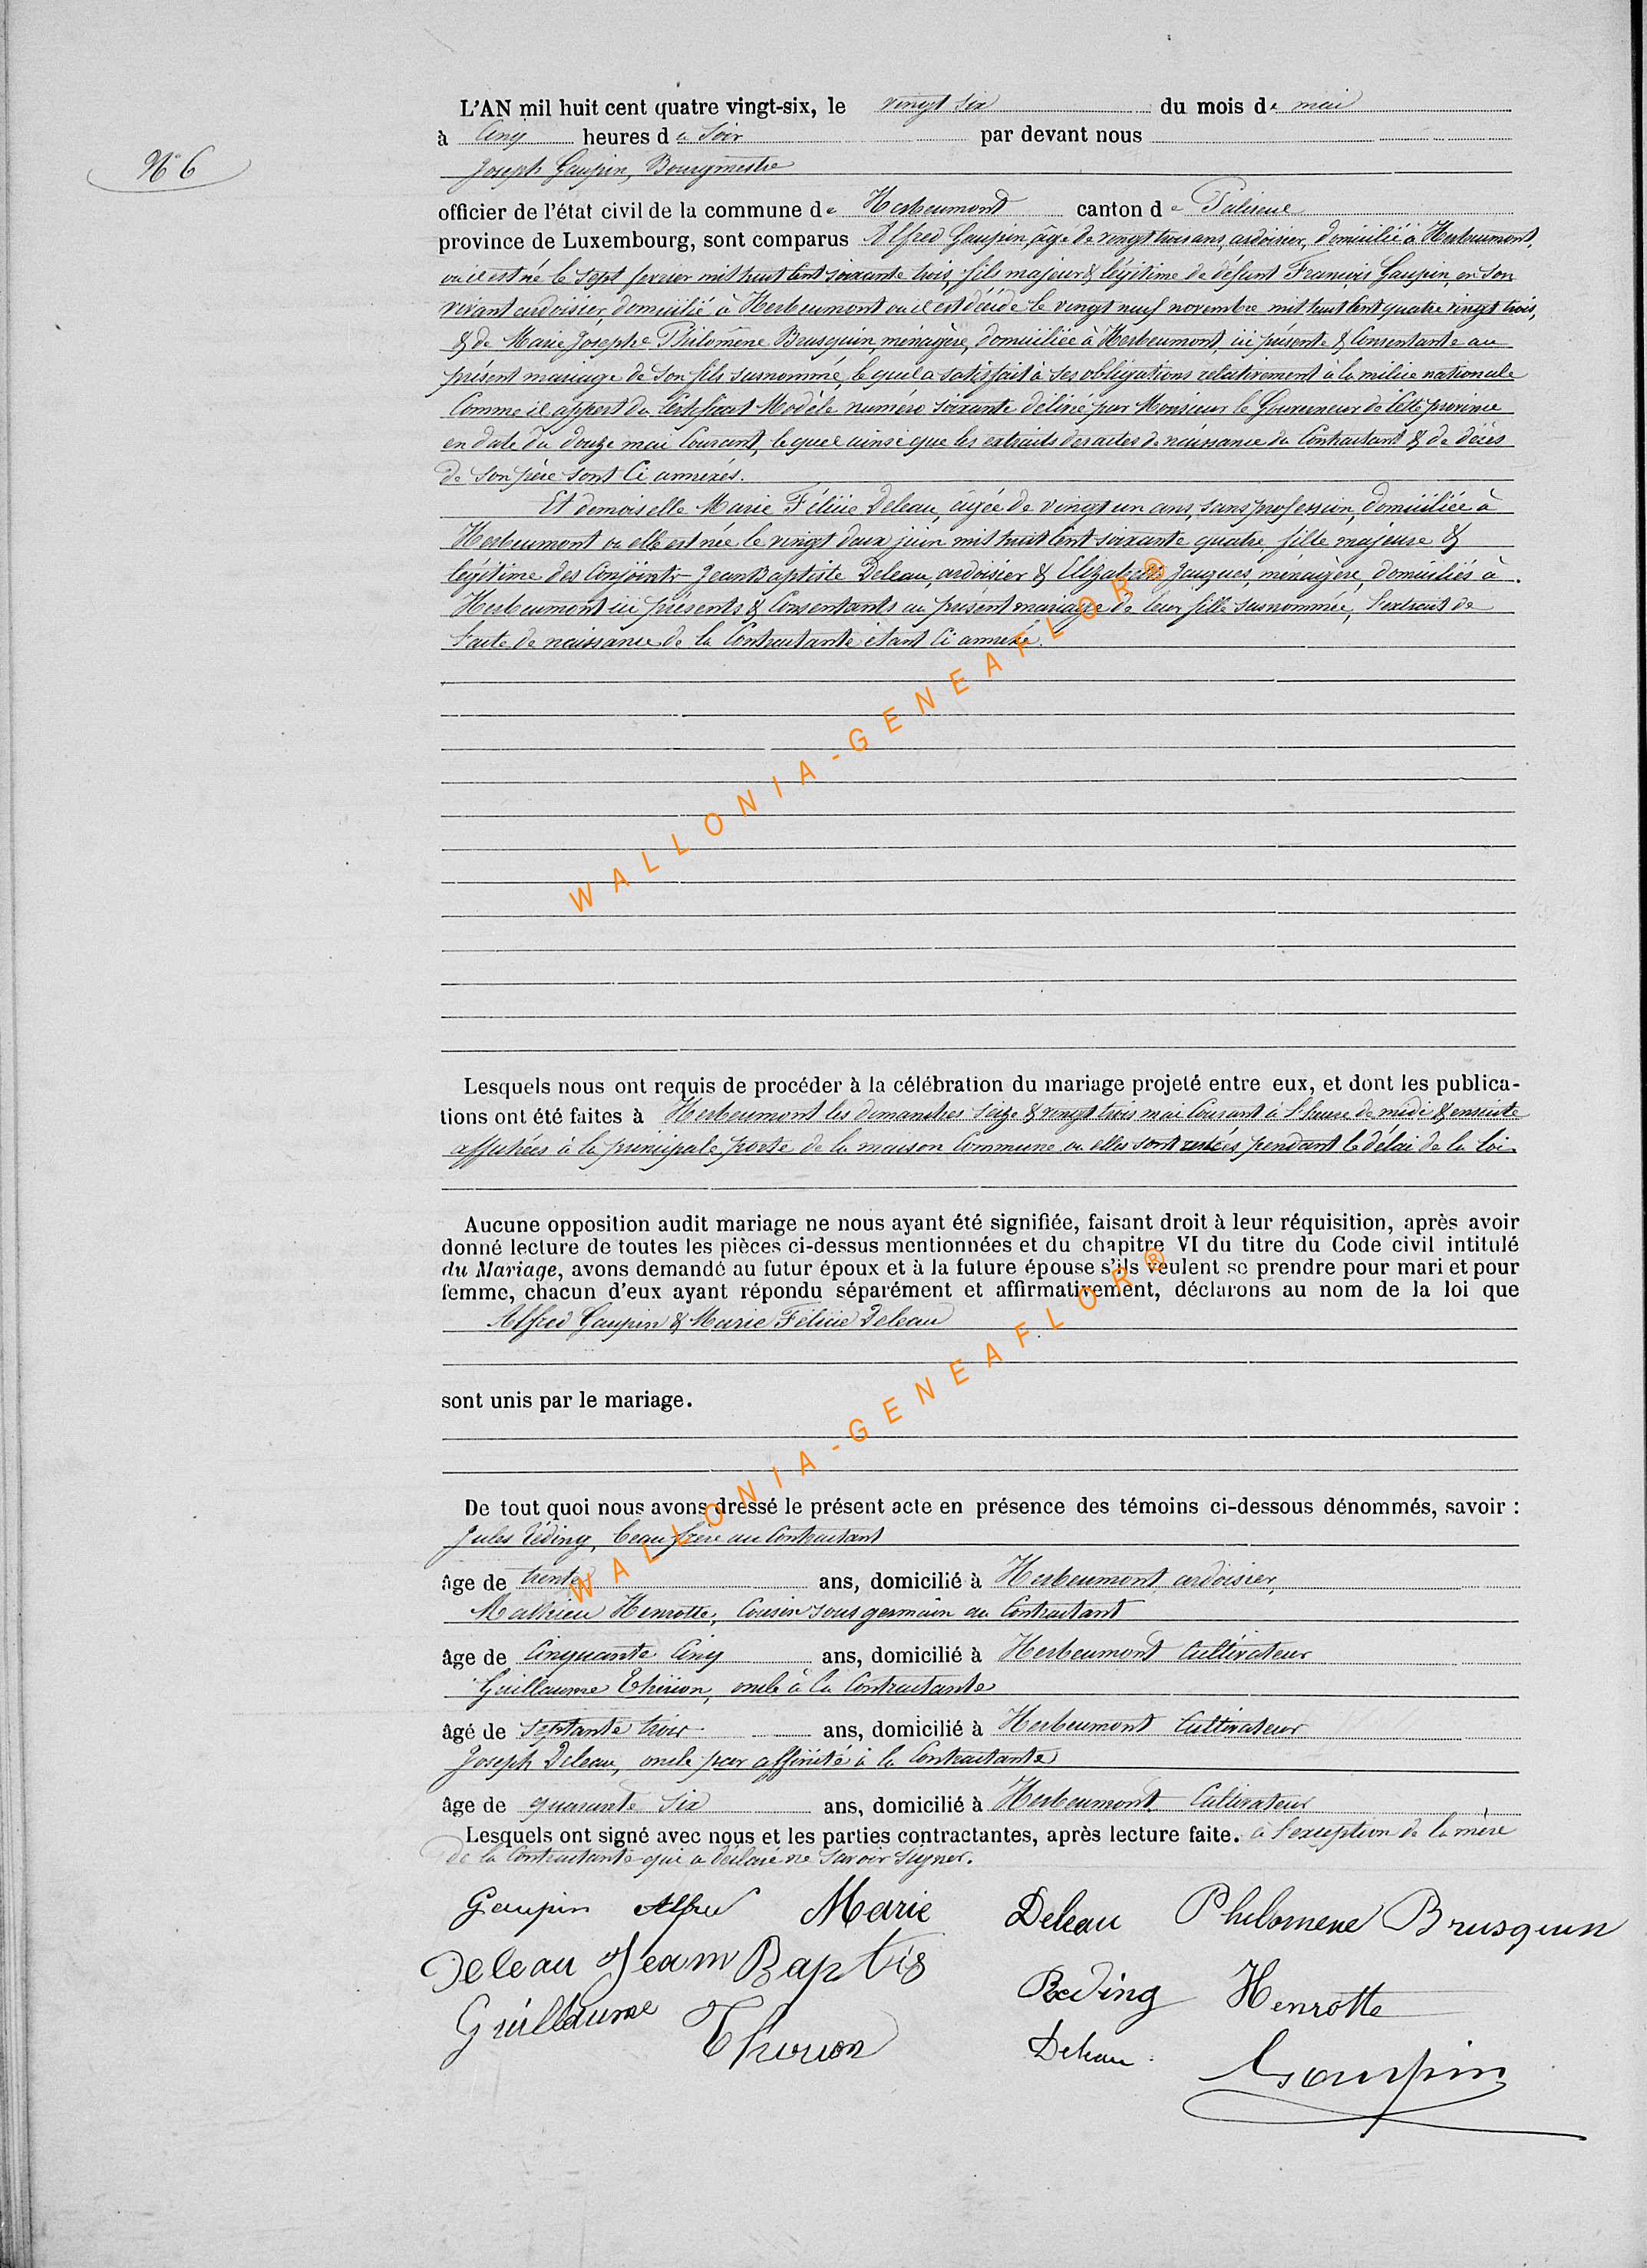 N° 6
L'AN mil huit cent quatre vingt-six, le vingt six du mois de mai
à Cinq heures du Soir par devant nous
Joseph Gaupin, Bourgmestre
officier de l'état civil de la commune de Herbeumont canton de Paliseul
province de Luxembourg, sont comparus Alfred Gaupin, âgé de vingt trois ans, ardoisier, domicilié à Herbeumont,
où il est né le sept février mil huit cent soixante trois, fils majeur & légitime de défunt François Gaupin, en son
vivant ardoisier, domicilié à Herbeumont où il est décédé le vingt neuf novembre mil huit cent quatre vingt trois,
& de Marie Josèphe Philomène Brusquin, ménagère, domiciliée à Herbeumont, ici présente & Consentante au
présent mariage de Son fils susnommé, lequel a satisfait à ses obligations relativement à la milice nationale
Comme il appert du Certificat Modèle numéro soixante délivré par Monsieur le Gouverneur de Cette province
en date du douze mai Courant, lequel ainsi que les extraits des actes de naissance du Contractant & de décès
de Son père sont Ci annexés.
Et demoiselle Marie Félicie Deleau, âgée de vingt un ans, sans profession, domiciliée à
Herbeumont où elle est née le vingt deux juin mil huit Cent soixante quatre, fille majeure &
légitime des Conjoints Jean Baptiste Deleau, ardoisier & Elizabeth Jacques, ménagère, domiciliés à
Herbeumont ici présents & Consentants au présent mariage de leur fille susnommée, l'extrait de
l'acte de naissance de la Contractante étant Ci annexé.
WALLONIA-GENEAFLOR®
Lesquels nous ont requis de procéder à la célébration du mariage projeté entre eux, et dont les publica-
tions ont été faites à Herbeumont les dimanches Seize & vingt trois mai Courant à l'heure de midi & ensuite
affichées à la principale porte de la maison Commune où elles sont restées pendant le délai de la loi.
Aucune opposition audit mariage ne nous ayant été signifiée, faisant droit à leur réquisition, après avoir
donné lecture de toutes les pièces ci-dessus mentionnées et du chapitre VI du titre du Code civil intitulé
du Mariage, avons demandé au futur époux et à la future épouse s'ils veulent se prendre pour mari et pour
femme, chacun d'eux ayant répondu séparément et affirmativement, déclarons au nom de la loi que
Alfred Gaupin & Marie Félicie Deleau
sont unis par le mariage.
WALLONIA-GENEAFLOR®
De tout quoi nous avons dressé le présent acte en présence des témoins ci-dessous dénommés, savoir :
Jules Réding, beau frère au Contractant
âge de trente ans, domicilié à Herbeumont ardoisier,
Mathieu Henrotte, Cousin sous germain au Contractant
âge de Cinquante Cinq ans, domicilié à Herbeumont Cultivateur
Guillaume Thirion, oncle à la Contractante
âgé de Septante trois ans, domicilié à Herbeumont Cultivateur
Joseph Deleau, oncle par affinité à la Contractante
âge de quarante Six ans, domicilié à Herbeumont Cultivateur
Lesquels ont signé avec nous et les parties contractantes, après lecture faite. à l'exception de la mère
de la Contractante qui a déclaré ne Savoir Signer.
Gaupin Alfred Marie Deleau Philomene Brusquin
Deleau Jean Baptis Reding Henrotte
Guillaume Thirion Deleau Gaupin